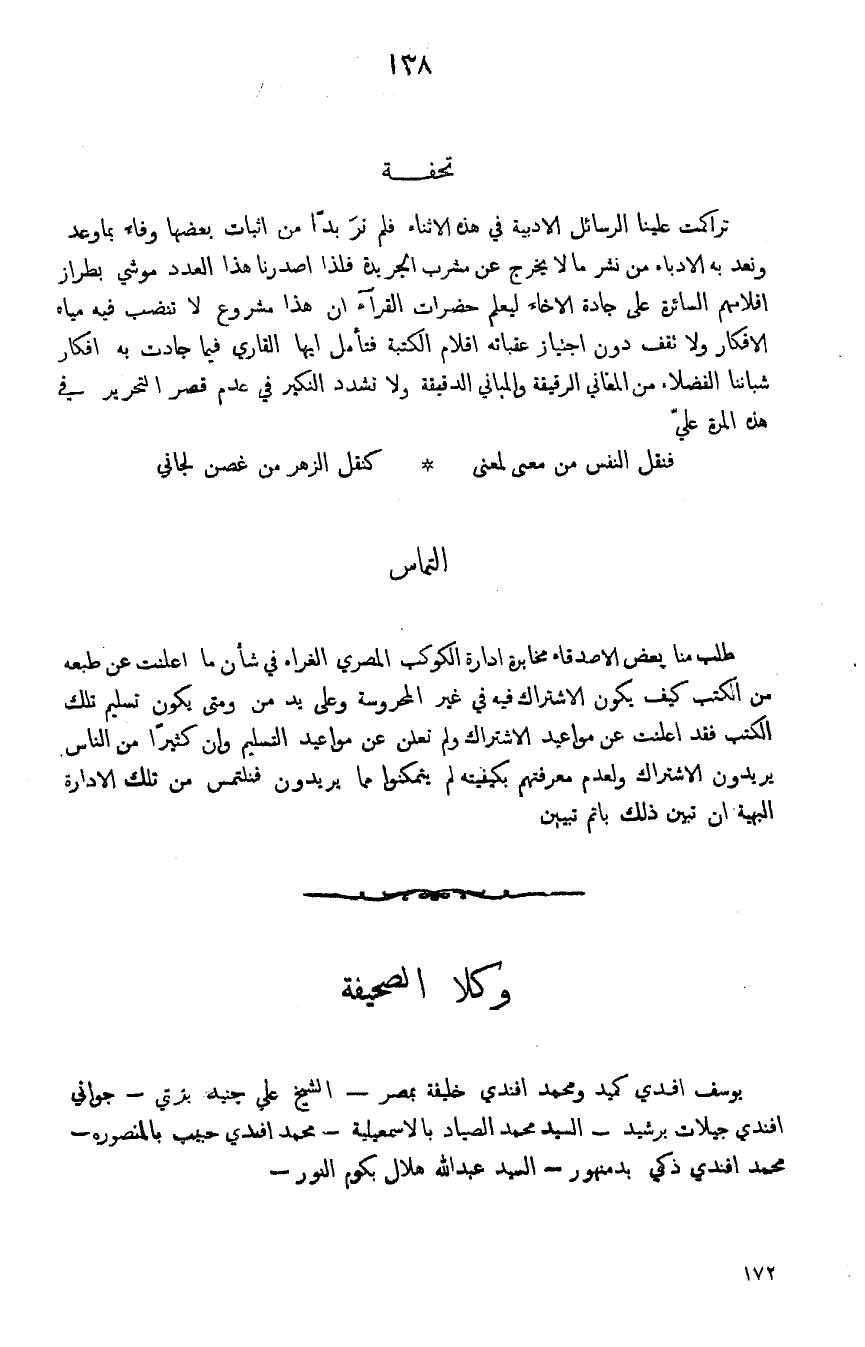 ١٣٨
تحفة
تراكمت علينا الرسائل الادبية في هذه الاثناء فلم نرَ بدّا من اثبات بعضها وفاء بماوعد
ونعد به الادباء من نشر ما لا يخرج عن مشرب الجريدة فلذا اصدرنا هذا العدد موشي بطراز
اقلامهم السائرة على جادة الاخاء ليعلم حضرات القرآء ان هذا مشروع لا تنضب فيه مياه
الافكار ولا تقف دون اجتياز عقباته اقلام الكتبة فتأمل ايها القاري فيما جادت به افكار
شباننا الفضلاء من المعاني الرقيقة والمباني الدقيقة ولا تشدد النكير في عدم قصر التحرير في
هذه المرة عليّ
فنقل النفس من معنى لمعنى * كنقل الزهر من غصن لجاني
التماس
طلب منا بعض الاصدقاء مخابرة ادارة الكوكب المصري الغراء في شأن ما اعلنت عن طبعه
من الكتب كيف يكون الاشتراك فيه في غير المحروسة وعلى يد من ومتى يكون تسليم تلك
الكتب فقد اعلنت عن مواعيد الاشتراك ولم تعلن عن مواعيد التسليم وان كثيرًا من الناس
يريدون الاشتراك ولعدم معرفتهم بكيفيته لم يتمكنوا مما يريدون فنلتمس من تلك الادارة
البهية ان تبين ذلك باتم تبيين
وكلا الصحيفة
يوسف افندي كميد ومحمد افندي خليفة بمصر – الشيخ علي جنيه بزتي – جواني
افندي جيلات برشيد – السيد محمد الصياد بالاسمعيلية – محمد افندي حبيب بالمنصوره –
محمد افندي ذكي بدمنهور – السيد عبدالله هلال بكوم النور –
١٧٢